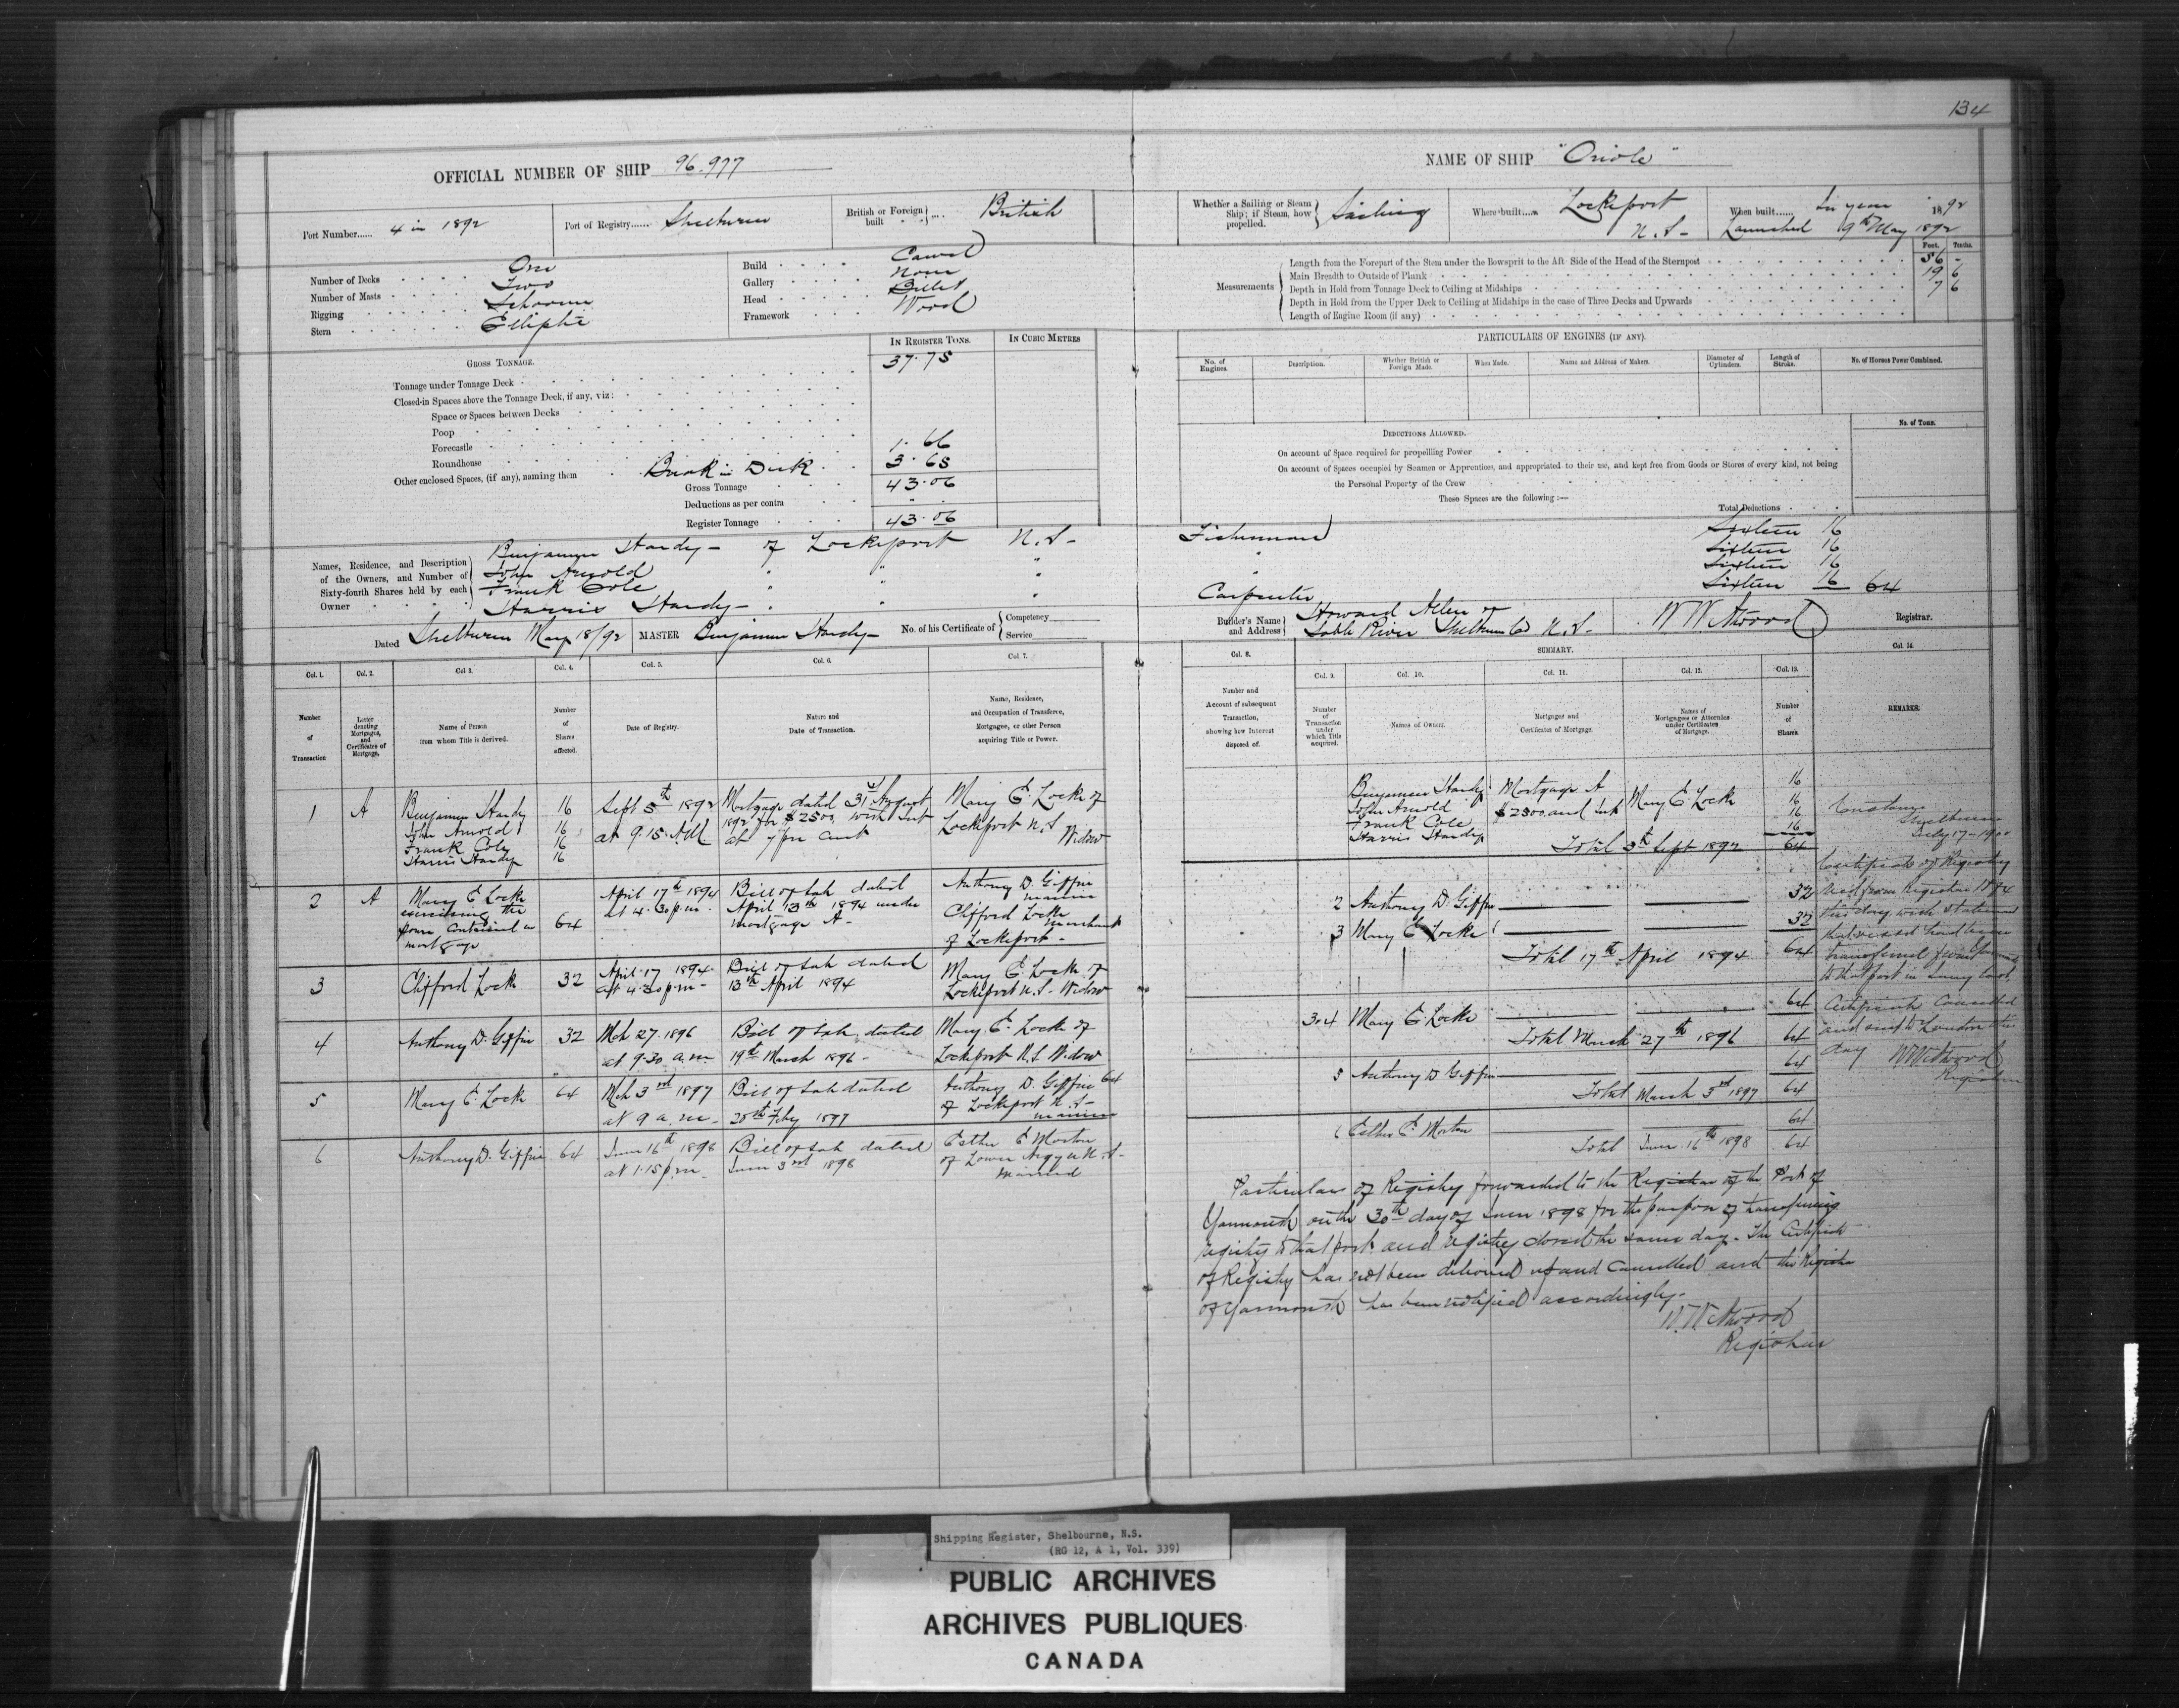 134
OFFICIAL NUMBER OF SHIP 96.977
NAME OF SHIP "Oriole"
Port Number...... 4 in 1892
Port of Registry...... Shelburne
British or Foreign built British
Whether a Sailing or Steam Ship; if Steam, how propelled. Sailing
Where built.... Lockeport N.S-
When built...... In year 1892
Launched 9th May 1892
Number of Decks One
Number of Masts Two
Rigging Schooner
Stern Elliptic
Build Carvel
Gallery None
Head Billet
Framework Wood
Measurements
Feet. Tenths.
Length from the Forepart of the Stem under the Bowsprit to the Aft Side of the Head of the Sternpost 56 -
Main Breadth to Outside of Plank 19 6
Depth in Hold from Tonnage Deck to Ceiling at Midships 7 6
Depth in Hold from the Upper Deck to Ceiling at Midships in the case of Three Decks and Upwards
Length of Engine Room (if any)
GROSS TONNAGE.
IN REGISTER TONS.
IN CUBIC METRES
Tonnage under Tonnage Deck 37.75
Closed-in Spaces above the Tonnage Deck, if any, viz:
Space or Spaces between Decks
Poop
Forecastle
Roundhouse 1.66
Other enclosed Spaces, (if any), naming them Break in Deck 3.65
Gross Tonnage 43.06
Deductions as per contra
Register Tonnage 43.06
PARTICULARS OF ENGINES (IF ANY).
No. of Engines.
Description.
Whether British or Foreign Made.
When Made.
Name and Address of Makers.
Diameter of Cylinders.
Length of Stroke.
No. of Horses Power Combined.
DEDUCTIONS ALLOWED.
No. of Tons.
On account of Space required for propelling Power
On account of Spaces occupied by Seamen or Apprentices, and appropriated to their use, and kept free from Goods or Stores of every kind, not being
the Personal Property of the Crew
These Spaces are the following:—
Total Deductions
Names, Residence, and Description of the Owners, and Number of Sixty-fourth Shares held by each Owner
Benjamin Hardy - of Lockeport N.S- Fisherman Sixteen 16
John Arnold " " " " Sixteen 16
Frank Cole " " " Sixteen 16
Harris Hardy - " " " Carpenter Sixteen 16 64
Dated Shelburne May 18/92
MASTER Benjamin Hardy-
No. of his Certificate of Competency Service
Builder's Name and Address Howard Allen of
Sable River Shelburne Co N.S-
W W Atwood Registrar.
Col. 1. Number of Transaction
Col. 2. Letter denoting Mortgages, and Certificates of Mortgage.
Col 3. Name of Person from whom Title is derived.
Col. 4. Number of Shares affected.
Col. 5. Date of Registry.
Col. 6. Nature and Date of Transaction.
Col. 7. Name, Residence, and Occupation of Transferee, Mortgagee, or other Person acquiring Title or Power.
Col. 8. Number and Account of subsequent Transaction, showing how Interest disposed of.
SUMMARY.
Col. 9. Number of Transaction under which Title acquired.
Col. 10. Names of Owners.
Col. 11. Mortgages and Certificates of Mortgage.
Col. 12. Names of Mortgagees or Attornies under Certificates of Mortgage.
Col. 13. Number of Shares.
Col. 14. REMARKS.
1 A
Benjamin Hardy 16
John Arnold 16
Frank Cole 16
Harris Hardy 16
Sept 5th 1892
at 9.15 AM
Mortgage dated 31st August
1892 for $2500 with int
at 7 per cent
Mary E. Locke of
Lockeport N.S
Widow
2 A
Mary E Locke
exercising the
power contained in
mortgage
64
April 17th 1894
at 4.30 p.m.
Bill of sale dated
April 13th 1894 under
mortgage A-
Anthony D. Giffin
mariner
Clifford Locke
merchant
of Lockeport-
3 Clifford Locke 32
April 17 1894
at 4.30 p.m-
Bill of sale dated
13th April 1894
Mary E. Locke of
Lockeport N.S- Widow
4 Anthony D. Giffin 32
Mch 27. 1896
at 9.30 a.m
Bill of sale dated
19th March 1896-
Mary E. Locke of
Lockeport N.S Widow
5 Mary E. Locke 64
Mch 3rd 1897
at 9 a.m-
Bill of sale dated
25th Feby 1897
Anthony D. Giffin 64
of Lockeport N.S-
mariner
6 Anthony D. Giffin 64
June 16th 1898
at 1.15 p.m-
Bill of sale dated
June 3rd 1898
Esther E Morton
of Lower Argyle N.S-
married
Benjamin Hardy 16
John Arnold 16
Frank Cole 16
Harris Hardy 16
Mortgage A
$2500, and Int
Mary E. Locke
Total 5th Sept 1892 64
2 Anthony D. Giffin 32
3 Mary E Locke 32
Total 17th April 1894 64
3.4 Mary E. Locke 64
Total March 27th 1896 64
5 Anthony D Giffin 64
Total March 3rd 1897 64
6 Esther E. Morton 64
Total June 16th 1898 64
Customs
Shelburne
July 17-1900
Certificate of Registry
recd from Registrar
this day with statement
that vessel had been
transferred from Yarmouth
to that port in
Certificate Cancelled
and sent to London this
day W W Atwood
Registrar
Particulars of Registry forwarded to the Registrar of the Port of
Yarmouth on the 30th day of June 1898 for the purpose of transferring
registry to that port and registry closed the same day. The Certificate
of Registry has not been delivered up and Cancelled and the Registrar
of Yarmouth has been notified accordingly-
W. W. Atwood
Registrar
Shipping Register, Shelbourne, N.S.
(RG 12, A 1, Vol. 339)
PUBLIC ARCHIVES
ARCHIVES PUBLIQUES
CANADA